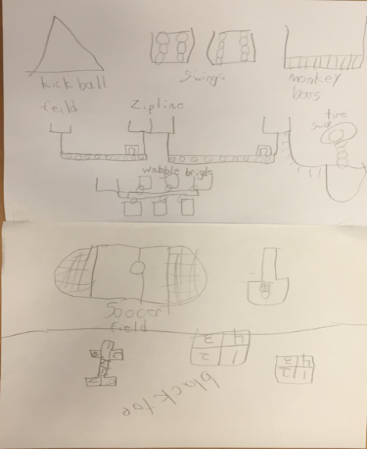 kick ball
feild
Swings
monkey
bars
Zipline
tire
swing
wabble brigde
Soccer
field
4 3
1 2
4 3
1 2
black toe